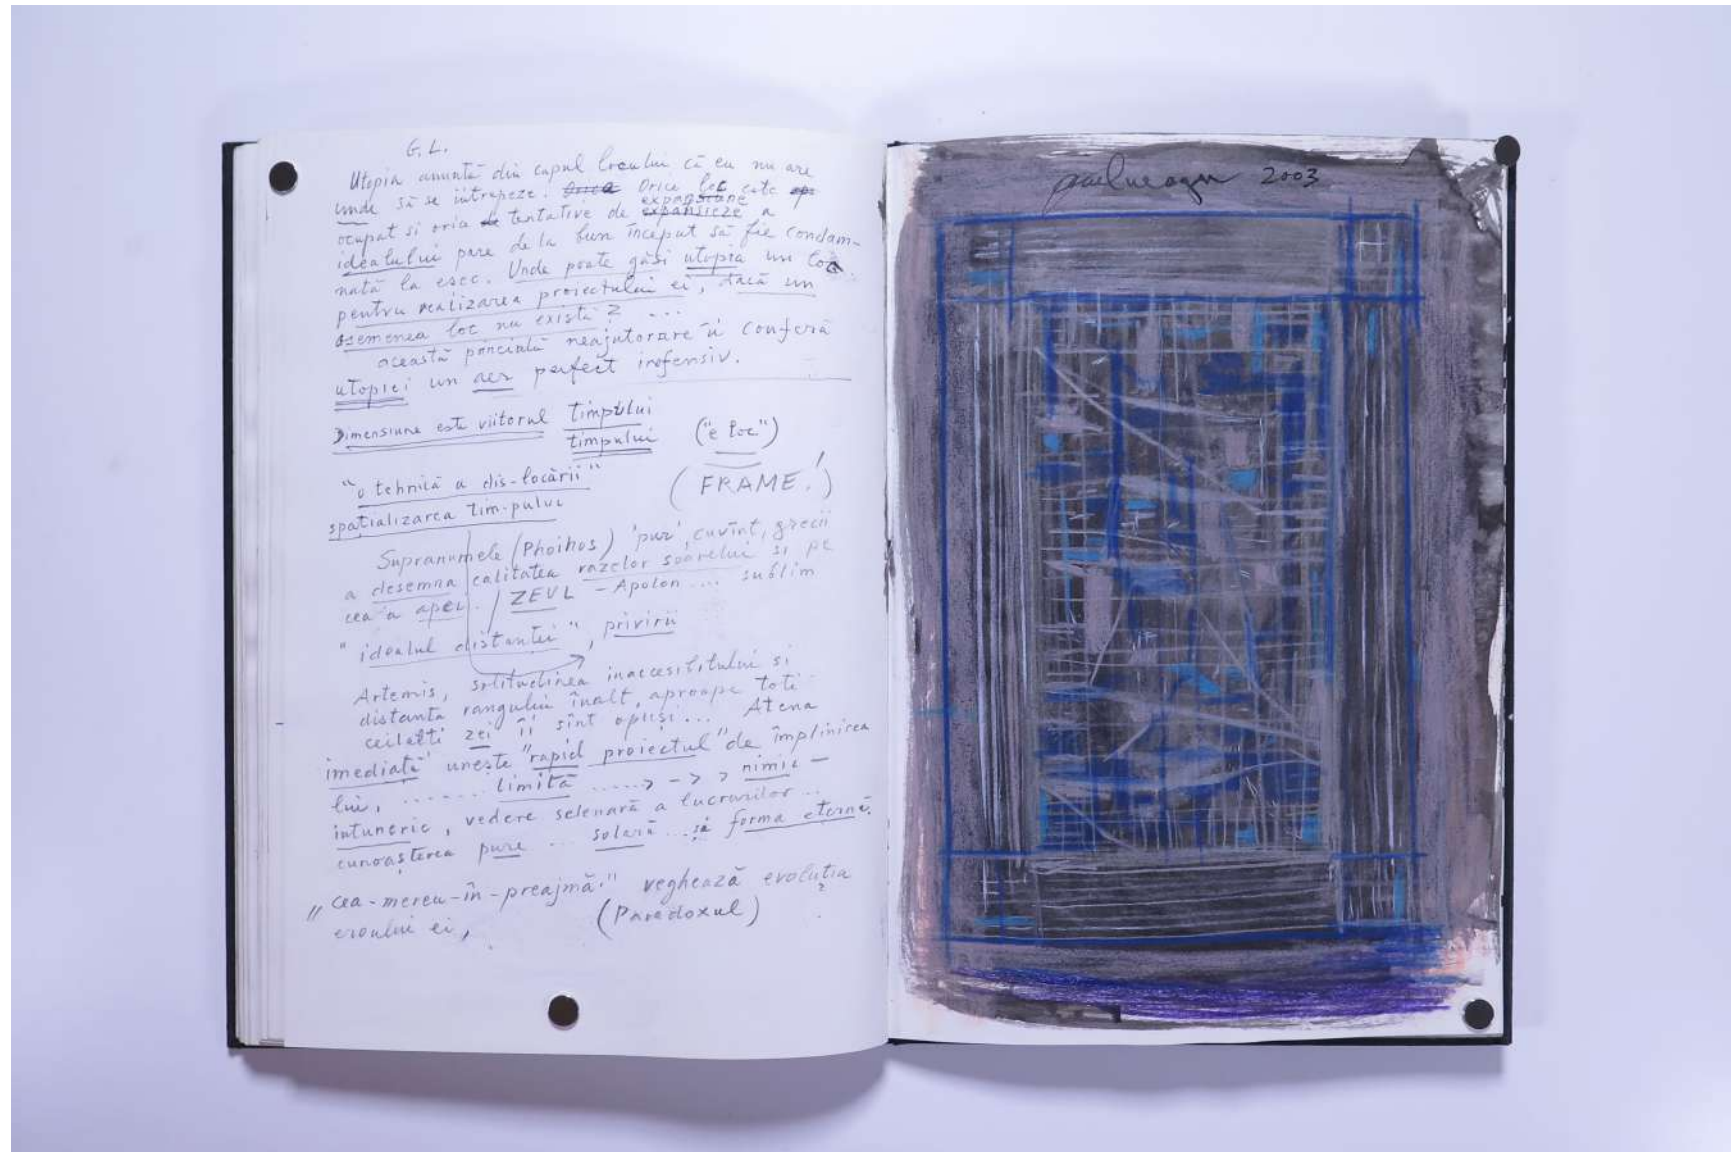 G.L.
Utopia anunță din capul locului că ea nu are
unde să se întrepeze. Orice Orice loc este op
ocupat si orice de tentative de expansiune expansieze a
idealului pare de la bun început să fie condam-
nată la esec. Unde poate găsi utopia un loc
pentru realizarea proiectului ei, dacă un
asemenea loc nu există? ...
această parțială neajutorare îi conferă
utopiei un aer perfect inofensiv.
Dimensiune este viitorul timpului
timpului ("e loc")
"o tehnică a dis-locării" (FRAME!)
spațializarea tim-pului
Supranumele (Phoibos) 'pur', cuvînt, grecii
a desemna calitatea razelor soarelui si pe
cea a apei. / ZEUL - Apolon .... sublim
"idealul distanței", privirii
Artemis, solitudinea inaccesibilului si
distanta rangului înalt, aproape toti
ceilalti zei îi sînt opuși... Atena
imediată uneste "rapid proiectul" de împlinirea
lui, ....... limită .....> -> > nimic -
intuneric, vedere selenară a lucrurilor ..
cunoașterea pure ... solară ... și forma eternă.
"cea-mereu-în-preajmă" veghează evoluția
eroului ei, (Paradoxul)
paulneagu 2003